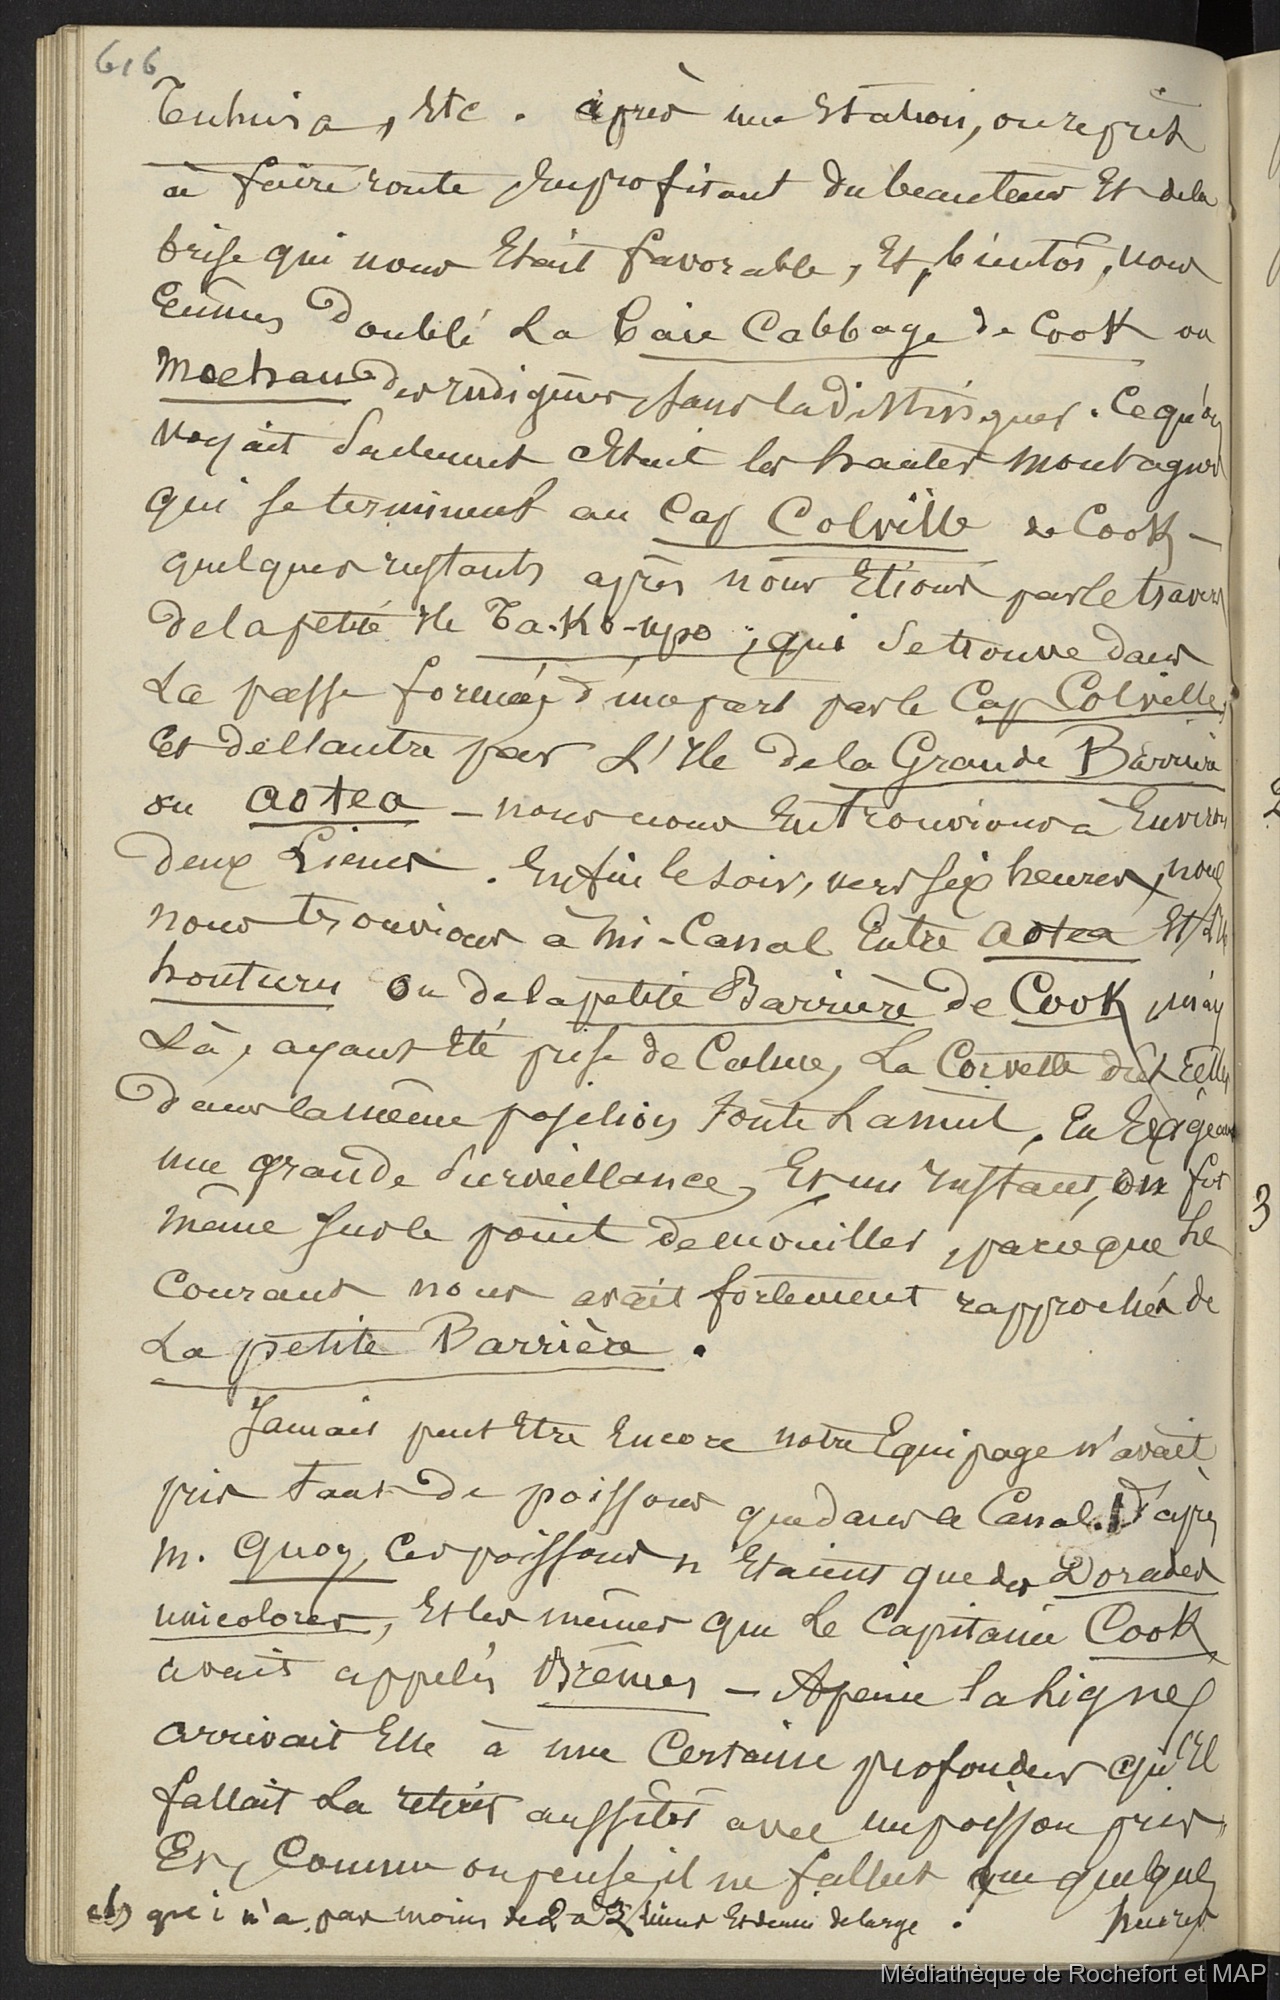 616
Tuhua, etc. après une station, on reprit
à faire route en profitant du beau tems et de la
brise qui nous etait favorable, et, bientôt, nous
eûmes doublé La Baie Cabbage de Cook ou
Moehau des Indigènes, sans la distinguer. Ce qu'on
voyait seulement c'etait les hautes montagnes
qui se terminent au Cap Colville de Cook –
quelques instants après nous etions par le travers
de la petite Ile Ta-Ko-upo, qui se trouve dans
La passe formée, d'une part par le Cap Colville,
et de l'autre par L'Ile de la Grande Barrière
ou aotea – nous nous en trouvions à Environ
deux Lieues. Enfin le soir, vers six heures, nous
nous trouvions à mi-Canal Entre aotea et
houturu ou de la petite Barrière de Cook
Là, ayant eté prise de Calme, La Corvette dut rester
dans la même position toute La nuit, en Exigeant
une grande surveillance, Et un instant, on fut
même sur le point de mouiller, parceque Le
Courant nous avait fortement rapprochés de
La petite Barrière.
Jamais peut Etre Encore notre Equipage n'avait
pris tant de poissons que dans ce Canal. D'après
m. Quoy, Ces poissons n'Etaient que des Dorades
unicolores, Et les mêmes que Le Capitaine Cook
avait appelés Brêmes – Apeine la Ligne
arrivait Elle à une Certaine profondeur qu'il
fallait La retirer aussitôt avec un poisson pris,
Et, Comme on pense, il ne fallut que quelques
heures
(1) qui n'a pas moins de 2 à 3 lieues Et demi de large.
3
Médiathèque de Rochefort et MAP